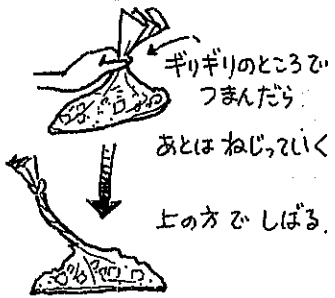 ギリギリのところで
つまんだら
あとは ねじっていく
上の方で しばる.